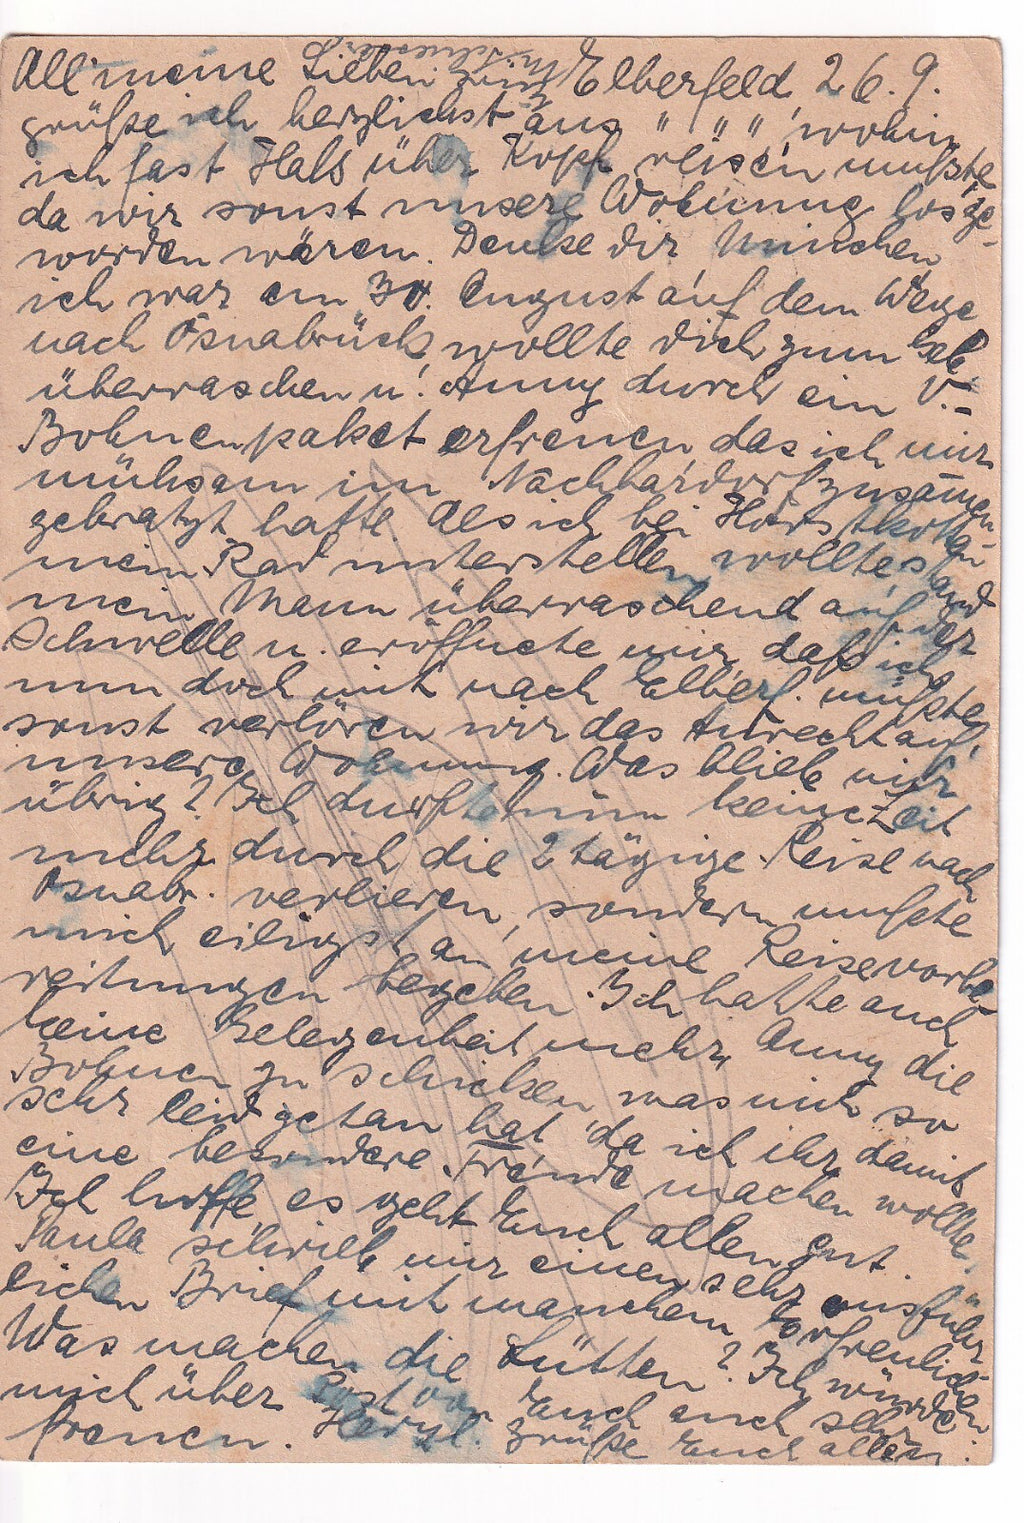 All' meine Lieben Elberfeld, 26. 9.
grüße ich herzlichst aus " " ", wohin
ich fast Hals über Kopf reisen mußte
da wir sonst unsere Wohnung losge-
worden wären. Denke dir Minchen
ich war am 30. August auf dem Wege
nach Osnabrück, wollte dich zum Geb.
überraschen u. Anny durch ein
Bohnenpaket erfreuen, das ich mir
mühsam im Nachbardorf zusammen
gekratzt hatte. Als ich bei
mein Rad unterstellen wollte, stand
mein Mann überraschend auf der
Schwelle u. eröffnete mir, daß ich
nun doch mit nach Elberf. müßte,
sonst verlören wir das Anrecht auf
unsere Wohnung. Was blieb mir
übrig? Ich durfte nun keine Zeit
mehr durch die 2 tägige Reise nach
Osnabr. verlieren, sondern mußte
mich eiligst an meine Reisevorbe
reitungen begeben. Ich hatte auch
keine Gelegenheit mehr, Anny die
Bohnen zu schicken, was mir so
sehr leid getan hat, da ich ihr damit
eine besondere Freude machen wollte.
Ich hoffe, es geht Euch allen gut.
Paula schrieb mir einen sehr ausführ
lichen Brief mit manchem Erfreulichen.
Was machen die Lütten? Ich würde
mich über Post von Euch auch sehr
freuen. Herzl. grüße Euch allen.